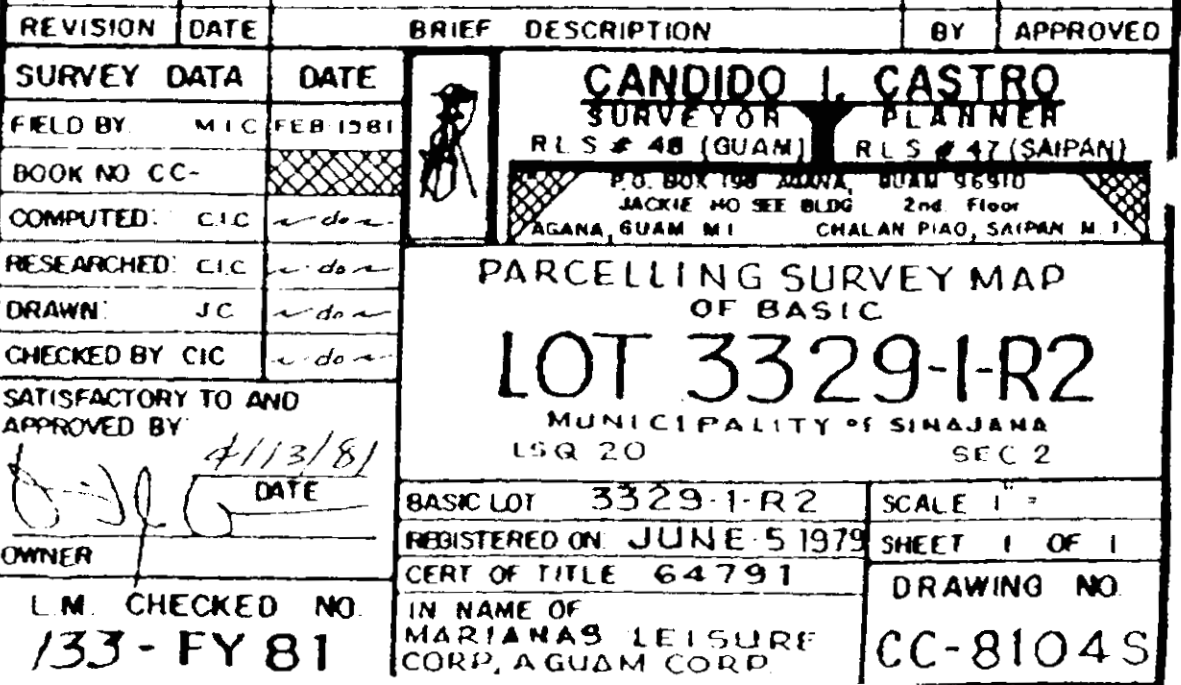 REVISION DATE BRIEF DESCRIPTION BY APPROVED
SURVEY DATA DATE
FIELD BY MIC FEB 1981
BOOK NO CC-
COMPUTED: C.I.C ~ do ~
RESEARCHED: CIC ~ do ~
DRAWN: JC ~ do ~
CHECKED BY CIC ~ do ~
SATISFACTORY TO AND
APPROVED BY:
4/13/81
DATE
OWNER
L.M. CHECKED NO.
133-FY 81
CANDIDO I. CASTRO
SURVEYOR PLANNER
RLS # 48 (GUAM) RLS # 47 (SAIPAN)
P.O. BOX 198 AGANA, GUAM 96910
JACKIE HO SEE BLDG 2nd. Floor
AGANA, GUAM M I CHALAN PIAO, SAIPAN M. I.
PARCELLING SURVEY MAP
OF BASIC
LOT 3329-1-R2
MUNICIPALITY OF SINAJANA
LSQ 20 SEC 2
BASIC LOT 3329-1-R2
SCALE 1" =
REGISTERED ON: JUNE 5 1979
SHEET 1 OF 1
CERT OF TITLE 64791
IN NAME OF
MARIANAS LEISURE
CORP, A GUAM CORP.
DRAWING NO.
CC-8104S